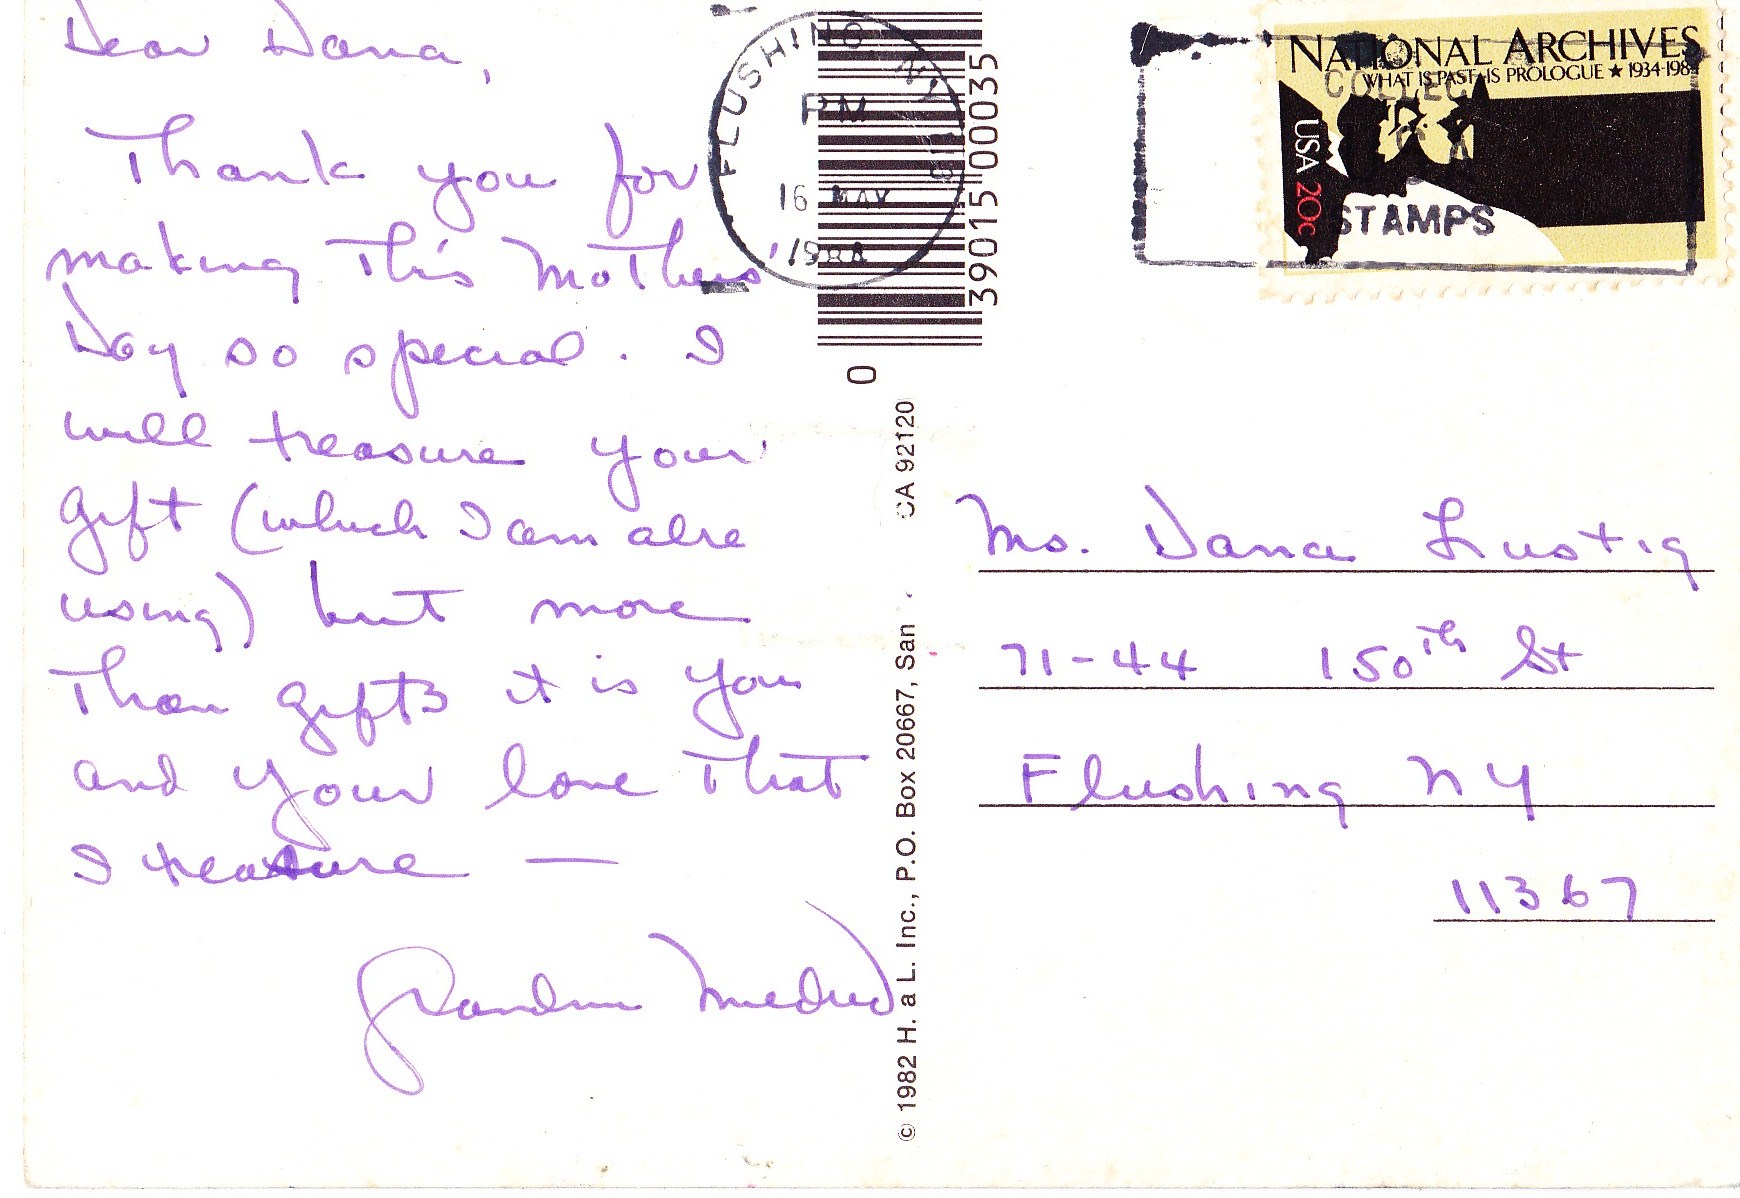 Dear Dana,
Thank you for
making this Mothers'
Day so special. I
will treasure your
gift (which I am alre
using) but more
than gifts it is you
and your love that
I treasure —
Grandma
FLUSHING, NY
PM
16 MAY
39015 00035
0
© 1982 H. a L. Inc., P.O. Box 20667, San CA 92120
NATIONAL ARCHIVES
WHAT IS PAST IS PROLOGUE ★ 1934-1984
USA 20c
COLLECT
STAMPS
Ms. Dana Lustig
71-44 150th St
Flushing NY
11367